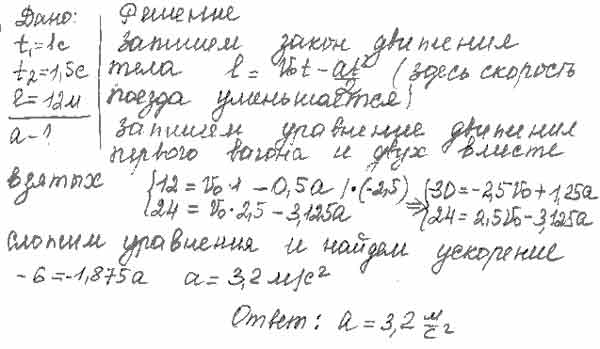 Дано: Решение
t₁=1с Запишем закон движения
t₂=1,5с тела l = V₀t - at²/2 (здесь скорость
l=12м поезда уменьшается)
a-? Запишем уравнение движения
первого вагона и двух вместе
взятых {12 = V₀·1 - 0,5a |·(-2,5) ⇒ {-30 = -2,5V₀+1,25a
{24 = V₀·2,5 - 3,125a {24 = 2,5V₀-3,125a
сложим уравнения и найдем ускорение
-6 = -1,875a a = 3,2 м/с²
Ответ: a = 3,2 м/с²